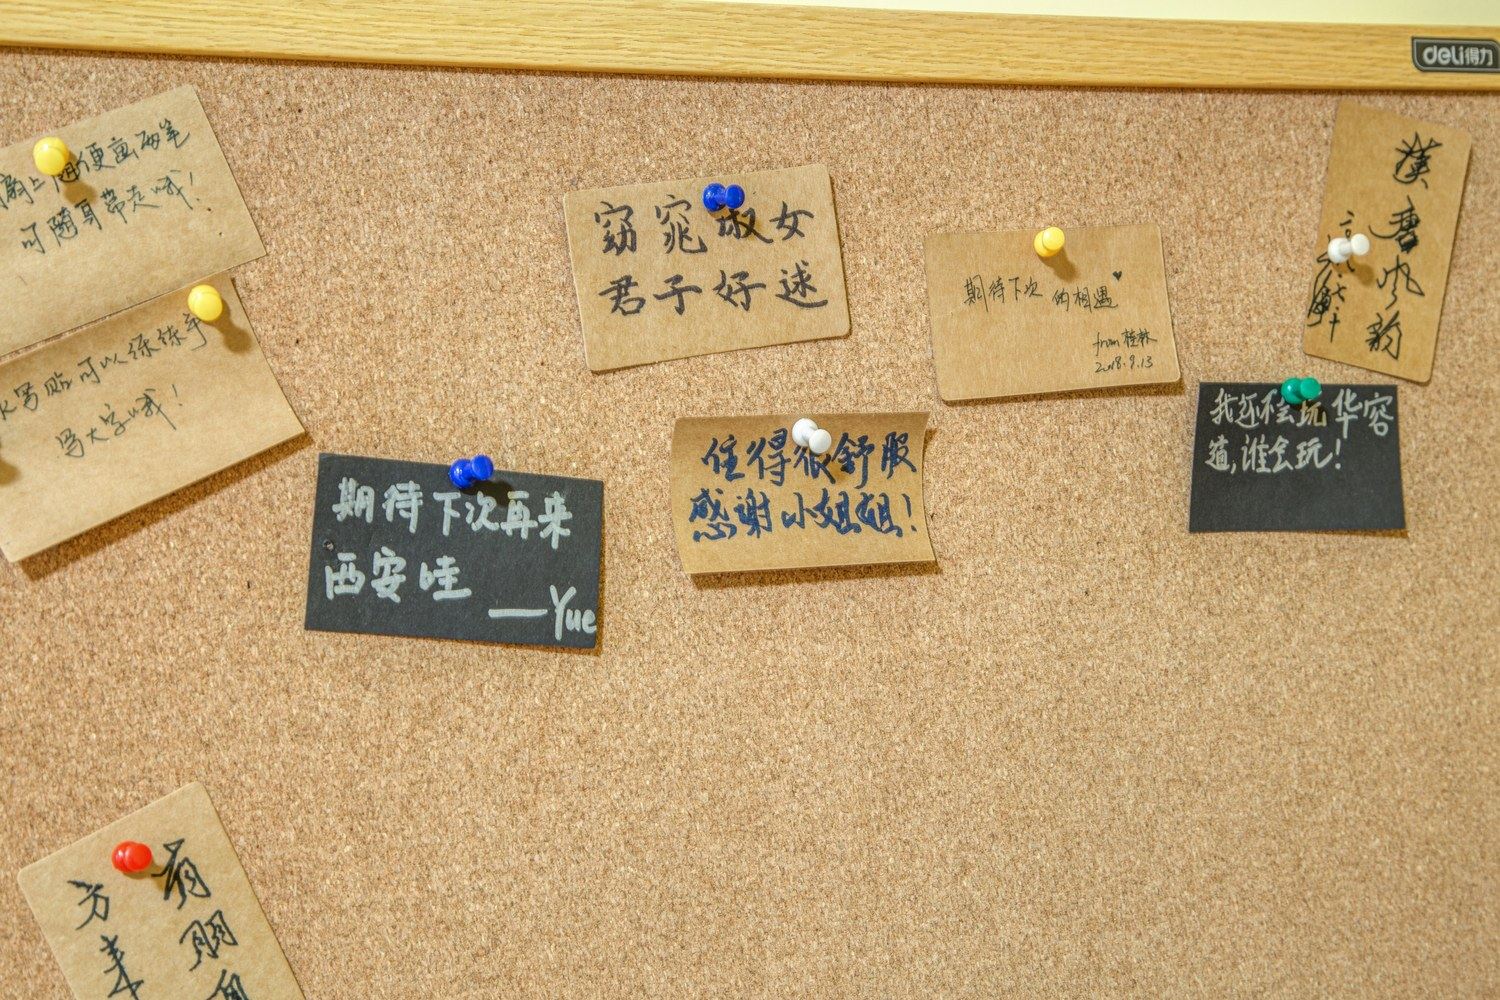 deli得力
扇上随便画两笔
可随身带走哦！
水写贴可以练练手
写大字哦！
窈窕淑女
君子好逑
期待下次的相遇♥
from 桂林
2018.9.13
漢唐风韵
期待下次再来
西安哇
——Yue
住得很舒服
感谢小姐姐！
我还不会玩华容
道，谁会玩！
有朋自
方来